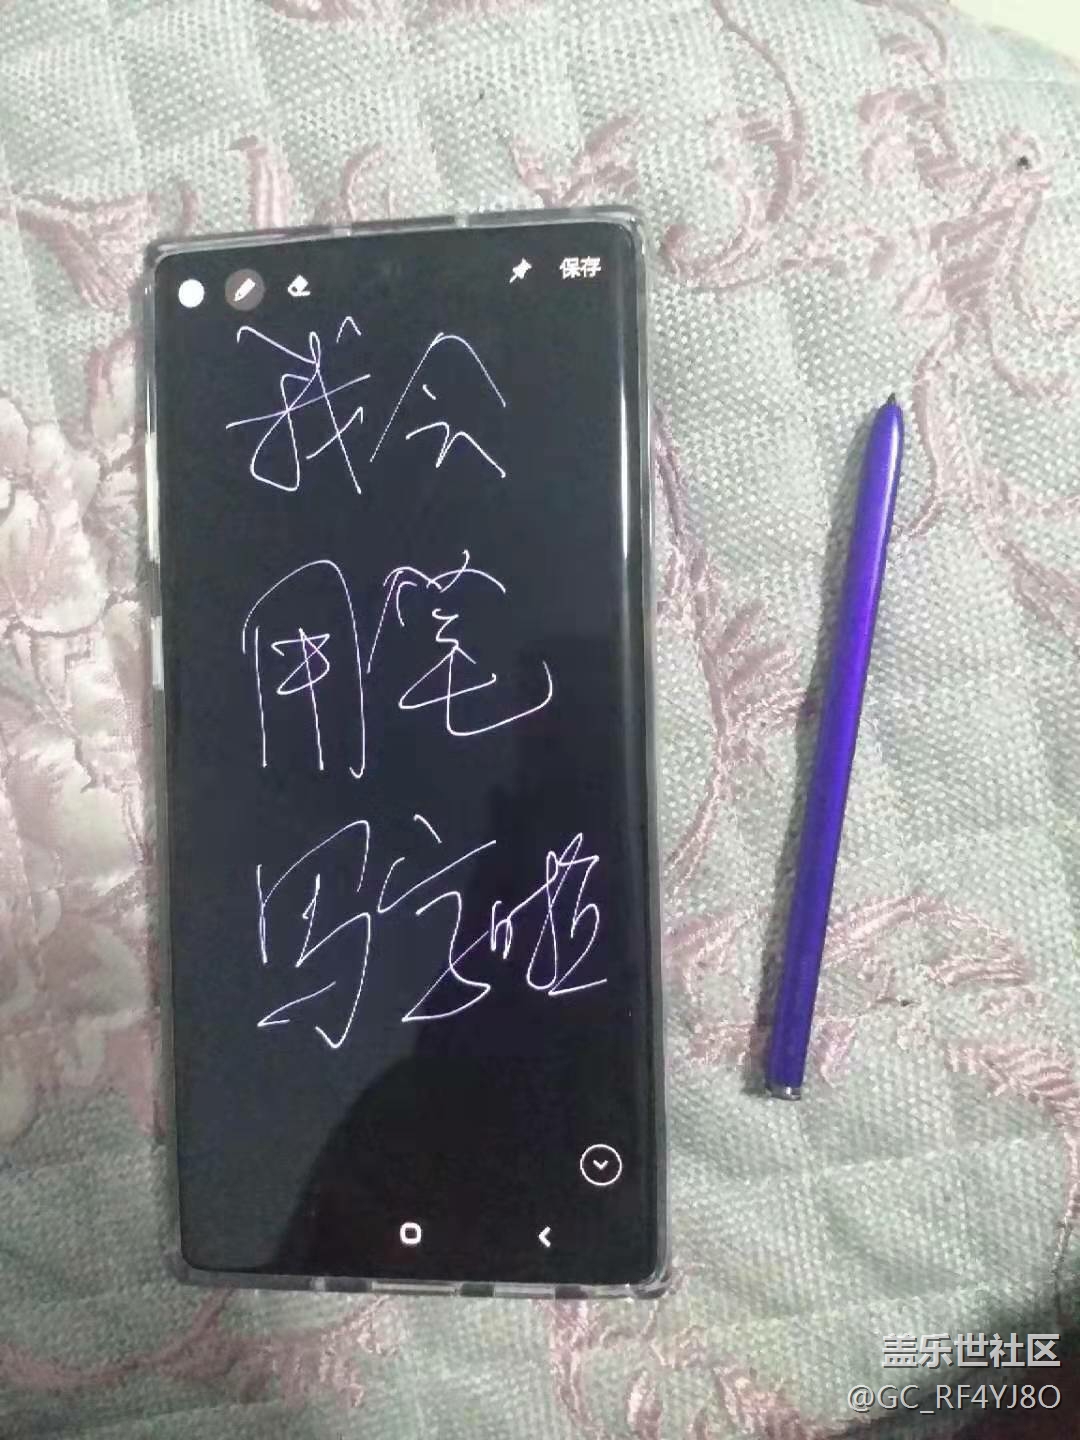 保存
我会
用笔
写字啦
盖乐世社区
@GC_RF4YJ8O